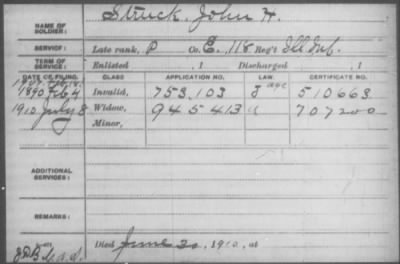 NAME OF SOLDIER: Struck, John H.
SERVICE: Late rank, P Co. E, 118 Reg't Ill Inf.
TERM OF SERVICE: Enlisted , 1 Discharged , 1
DATE OF FILING. CLASS APPLICATION NO. LAW. CERTIFICATE NO.
1890 Feb 4 Invalid, 753,103 age 510663
1910 July 8 Widow, 945413 707200
Minor,
ADDITIONAL SERVICES:
REMARKS:
Died June 30, 1910, at